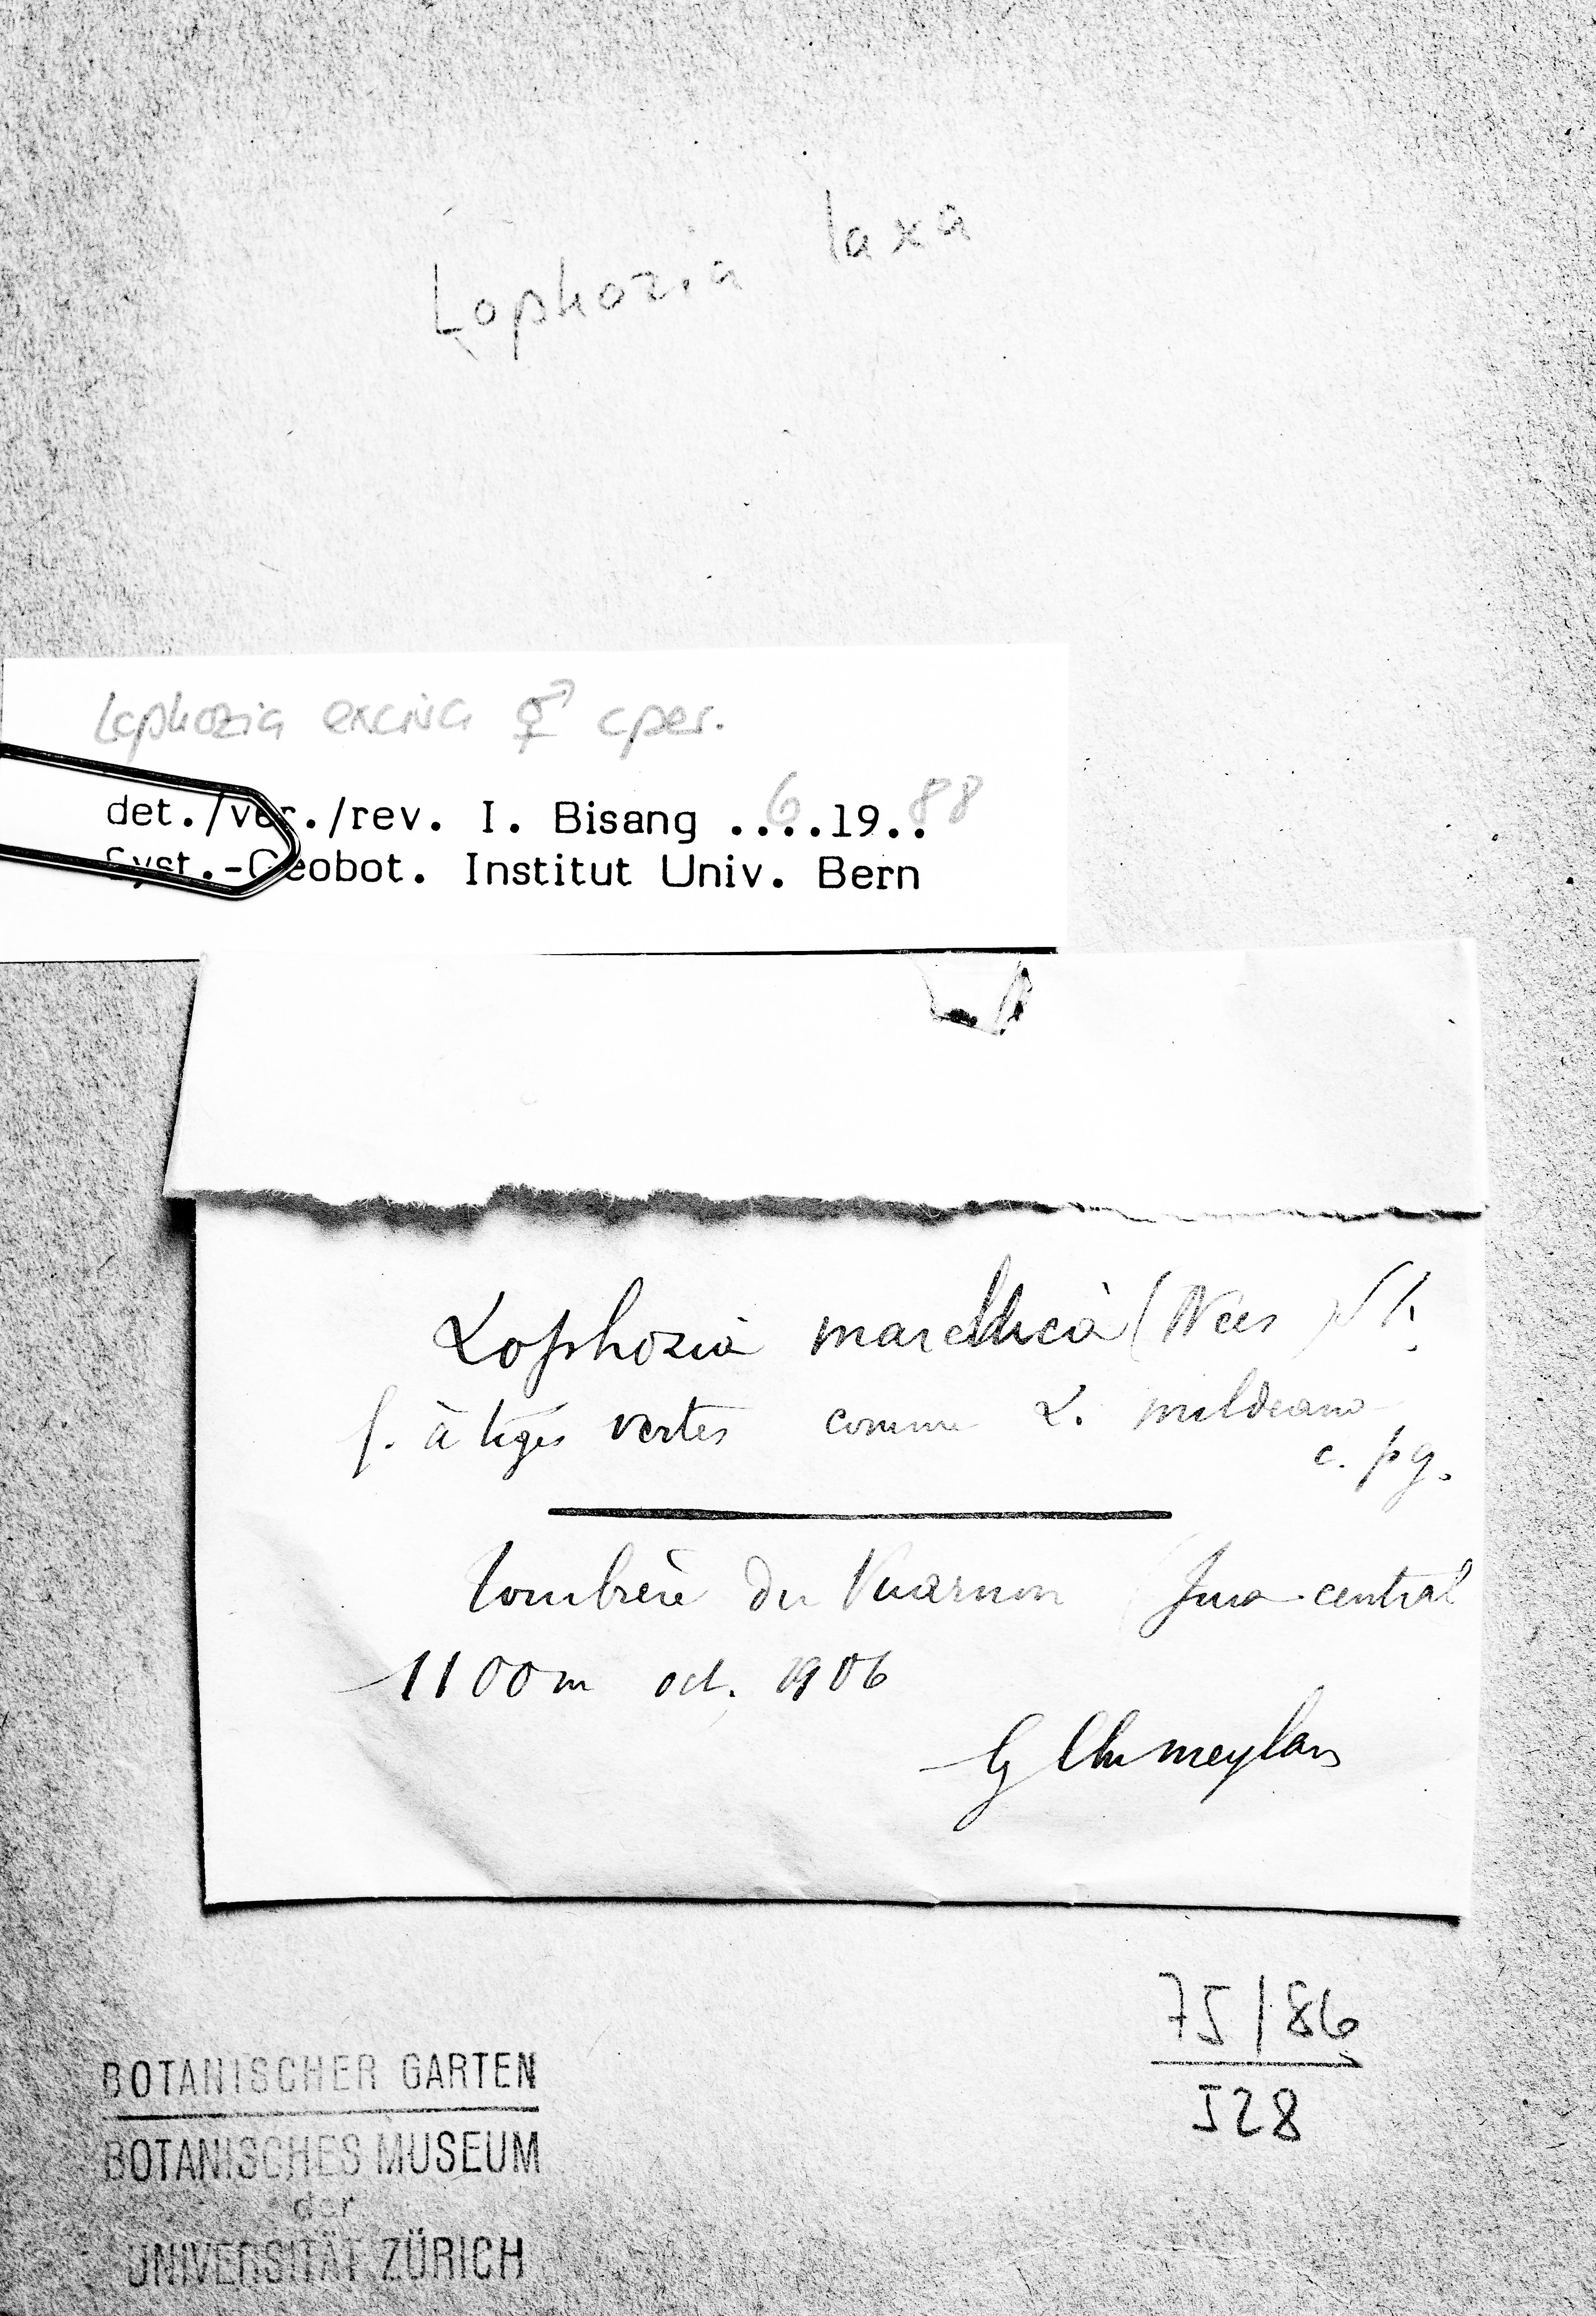 Lophozia laxa
Lophozia excisa ⚥ cper.
det./ver./rev. I. Bisang ..6..19.88
Syst.-Geobot. Institut Univ. Bern
Lophozia marchica (Nees) St.
f. à tiges vertes comme L. mildeana
c. pg.
Tourbière du Vuarnon (Jura central
1100m oct. 1906
Ch Meylan
75/86
528
BOTANISCHER GARTEN
BOTANISCHES MUSEUM
der
UNIVERSITÄT ZÜRICH